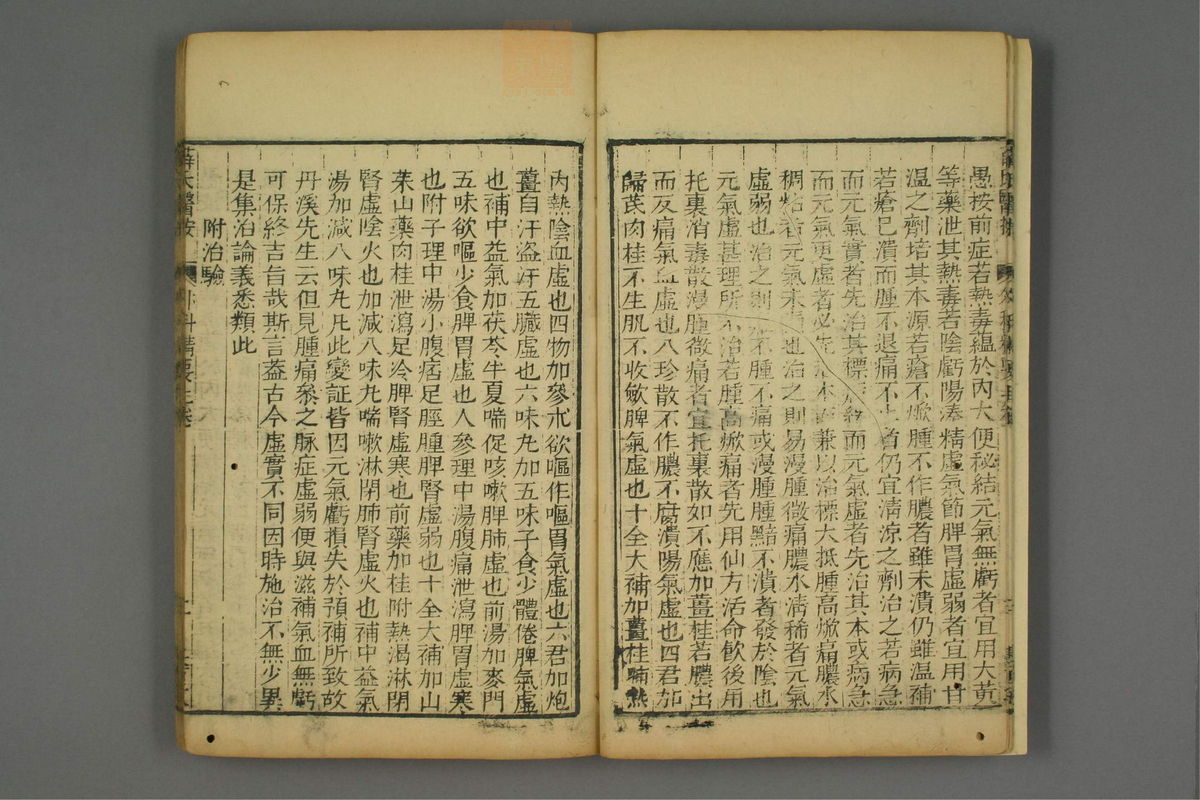 愚按前症若熱毒蘊於內大便秘結元氣無虧者宜用大黃
等藥泄其熱毒若陰虧陽湊精虛氣節脾胃虛弱者宜用甘
温之劑培其本源若瘡不焮腫不作膿者雖未潰仍雖温補
若瘡已潰而腫不退痛不 者仍宜清涼之劑治之若病急
而元氣實者先治其標 緩而元氣虛者先治其本或病急
而元氣更虛者必先 本而兼以治標大抵腫高焮痛膿水
稠粘者元氣未 也治之則易漫腫微痛膿水清稀者元氣
虛弱也治之則 不腫不痛或漫腫腫黯不潰者發於陰也
元氣虛甚理所不治若腫高焮痛者先用仙方活命飲後用
托裏消毒散漫腫微痛者宜托裏散如不應加薑桂若膿出
而反痛氣血虛也八珍散不作膿不腐潰陽氣虛也四君加
歸芪肉桂不生肌不收歛脾氣虛也十全大補加薑桂晡熱
內熱陰血虛也四物加參朮欲嘔作嘔胃氣虛也六君加炮
薑自汗盗汗五臟虛也六味丸加五味子食少體倦脾氣虛
也補中益氣加茯苓半夏喘促咳嗽脾肺虛也前湯加麥門
五味欲嘔少食脾胃虛也人參理中湯腹痛泄瀉脾胃虛寒
也附子理中湯小腹痞足脛腫脾腎虛弱也十全大補加山
茱山藥肉桂泄瀉足冷脾腎虛寒也前藥加桂附熱渴淋閉
腎虛陰火也加減八味丸喘嗽淋閉肺腎虛火也補中益氣
湯加減八味丸凡此變証皆因元氣虧損失於預補所致故
丹溪先生云但見腫痛參之脉症虛弱便與滋補氣血無虧
可保終吉旨哉斯言葢古今虛實不同因時施治不無少異
是集治論義悉類此
附治驗
薛氏醫按
外科精要上卷